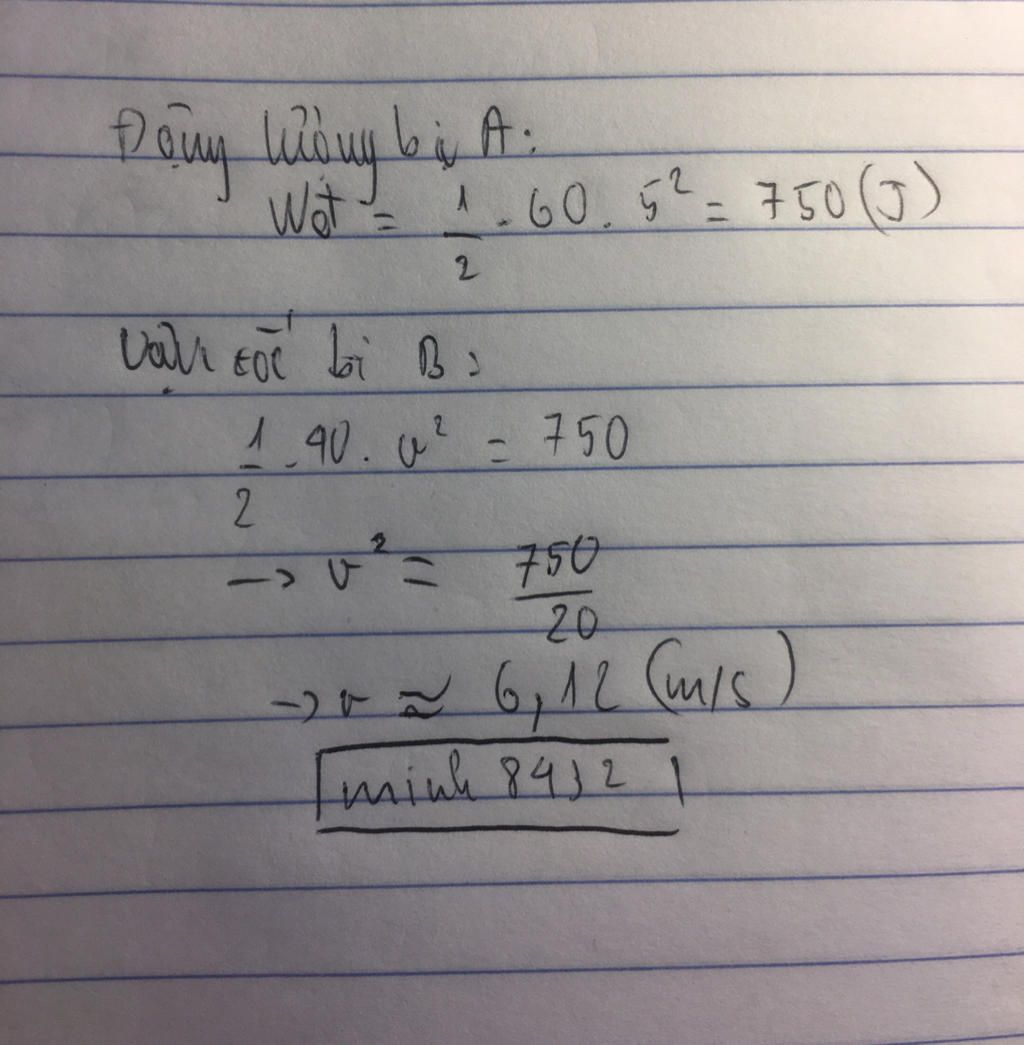 Động lượng bi A:
Wđ = 1/2 . 60 . 5² = 750 (J)
Vận tốc bi B:
1/2 . 40 . v² = 750
→ v² = 750/20
→ v ≈ 6,12 (m/s)
minh 8432